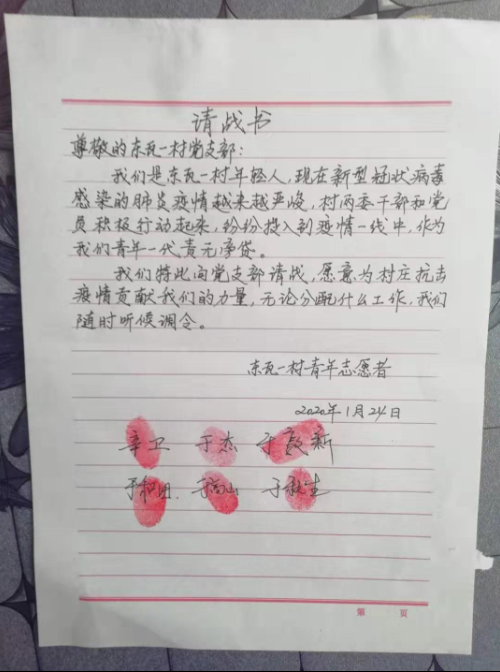 请战书
尊敬的东瓦一村党支部：
我们是东瓦一村年轻人，现在新型冠状病毒
感染的肺炎疫情越来越严峻，村两委干部和党
员积极行动起来，纷纷投入到疫情一线中，作为
我们青年一代责无旁贷。
我们特此向党支部请战，愿意为村庄抗击
疫情贡献我们的力量，无论分配什么工作，我们
随时听候调令。
东瓦一村青年志愿者
2020年1月24日
辛卫 于杰 于新
于 于山 于生
第 页